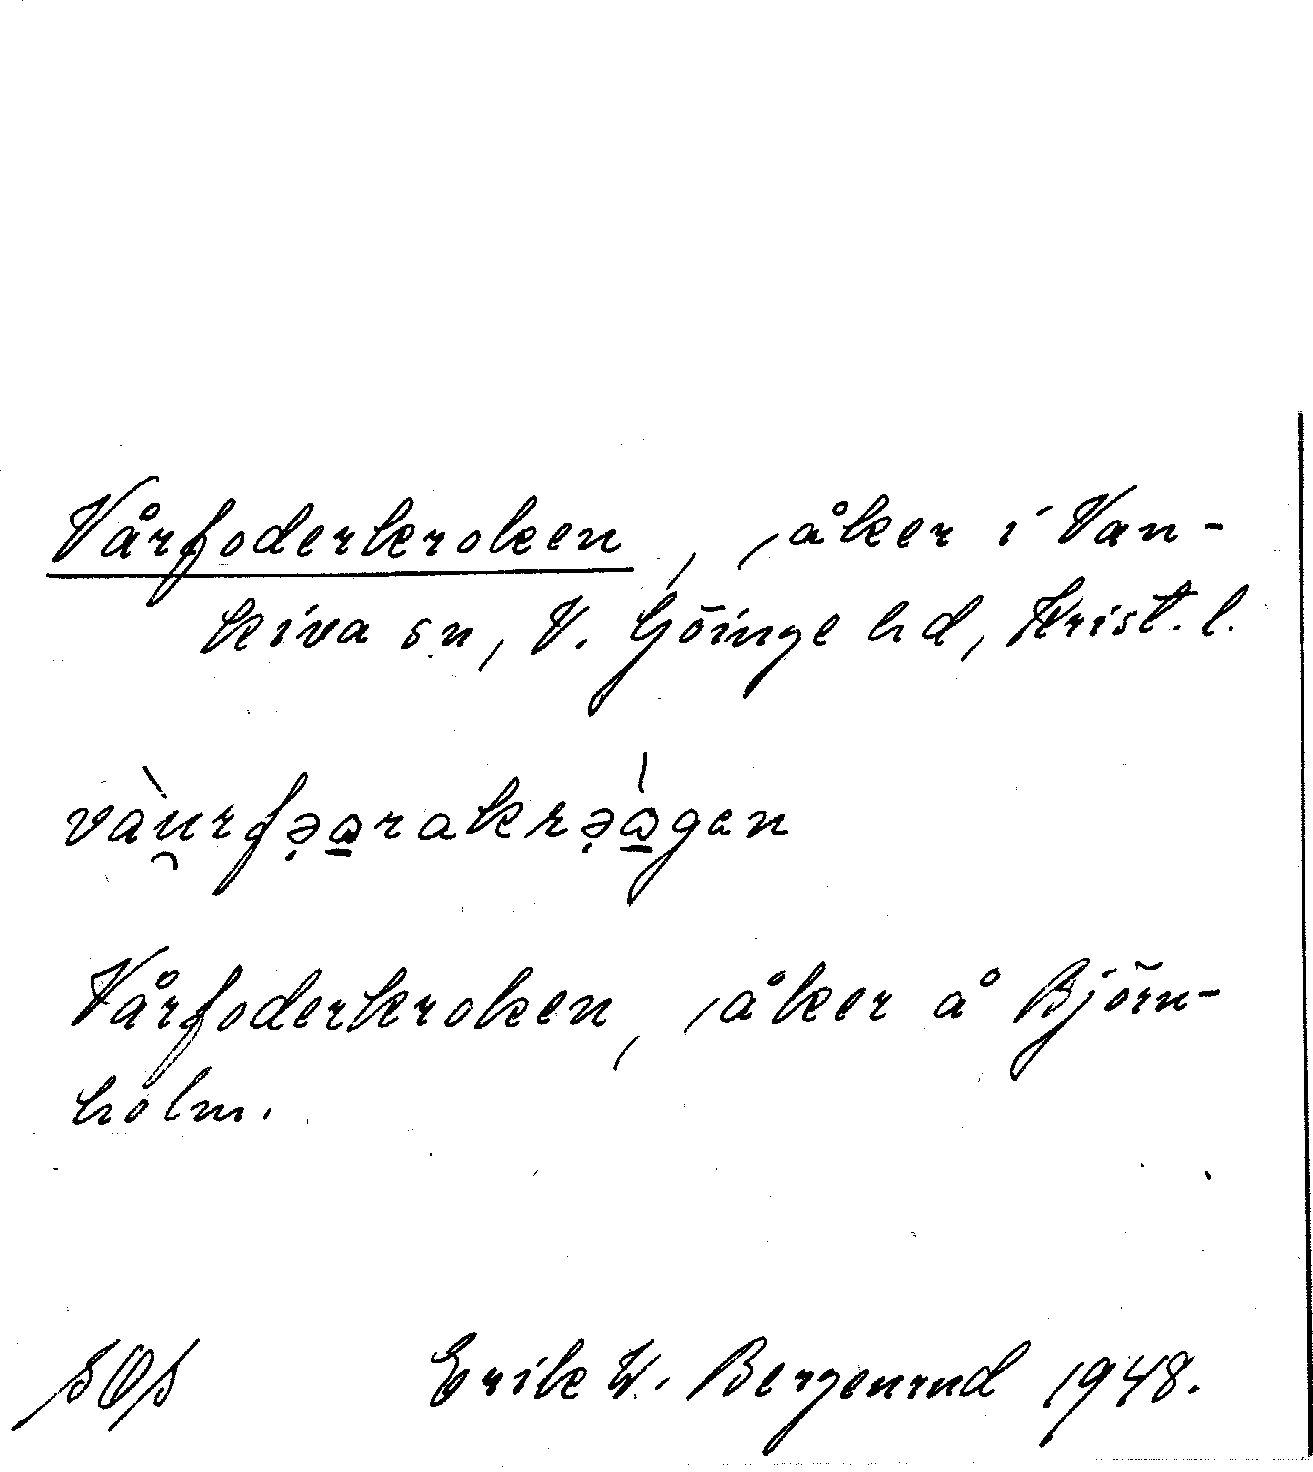 Vårfoderkroken, åker i Van-
kiva sn, V. Göinge hd, Krist. l.
Vårfoderkroken, åker å Björn-
holm.
Erik W. Bergenrud 1948.